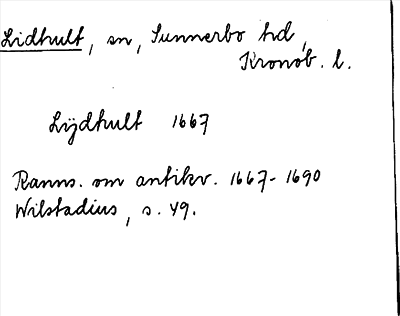 Lidhult, sn, Sunnerbo hd,
Kronob. l.
Lÿdhult 1667
Ranns. om antikv. 1667-1690
Wilstadius, s. 49.